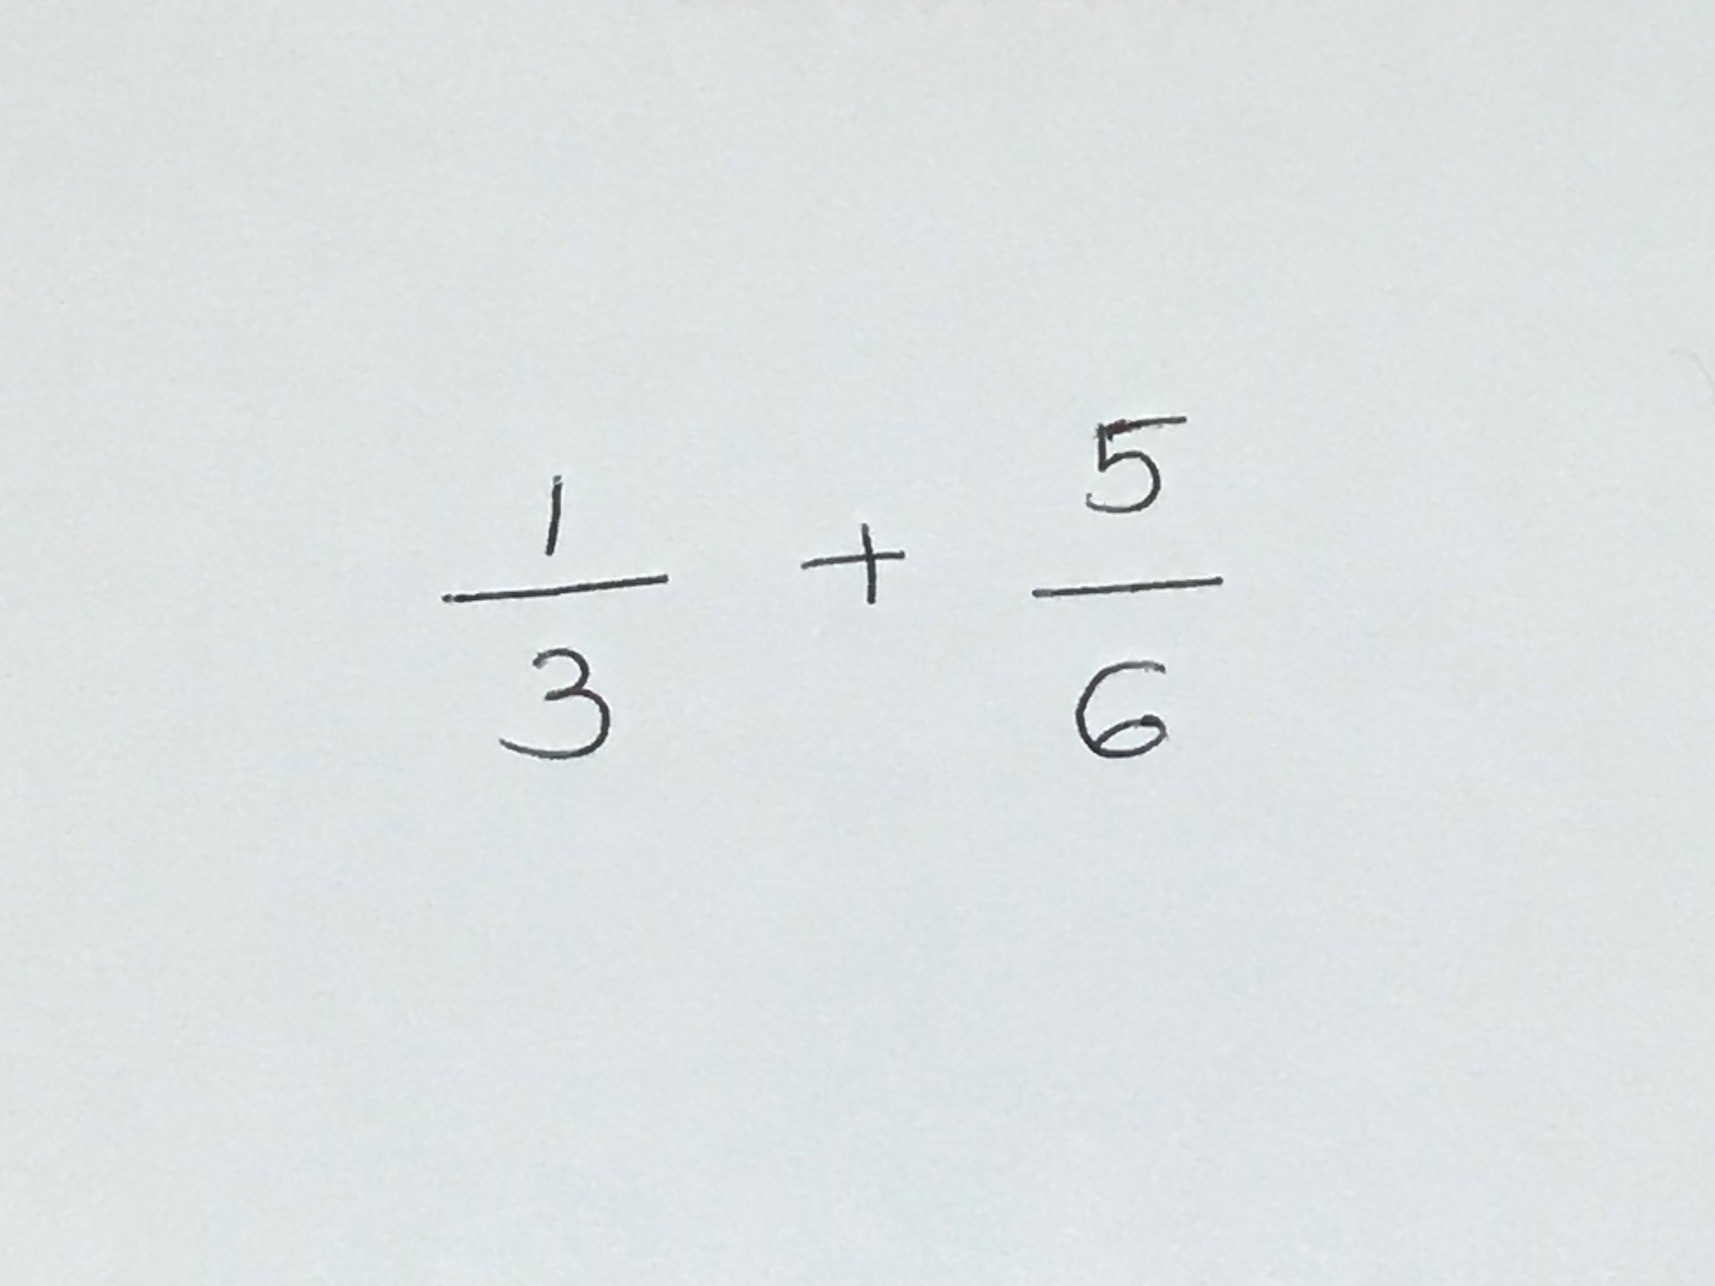 1/3 + 5/6